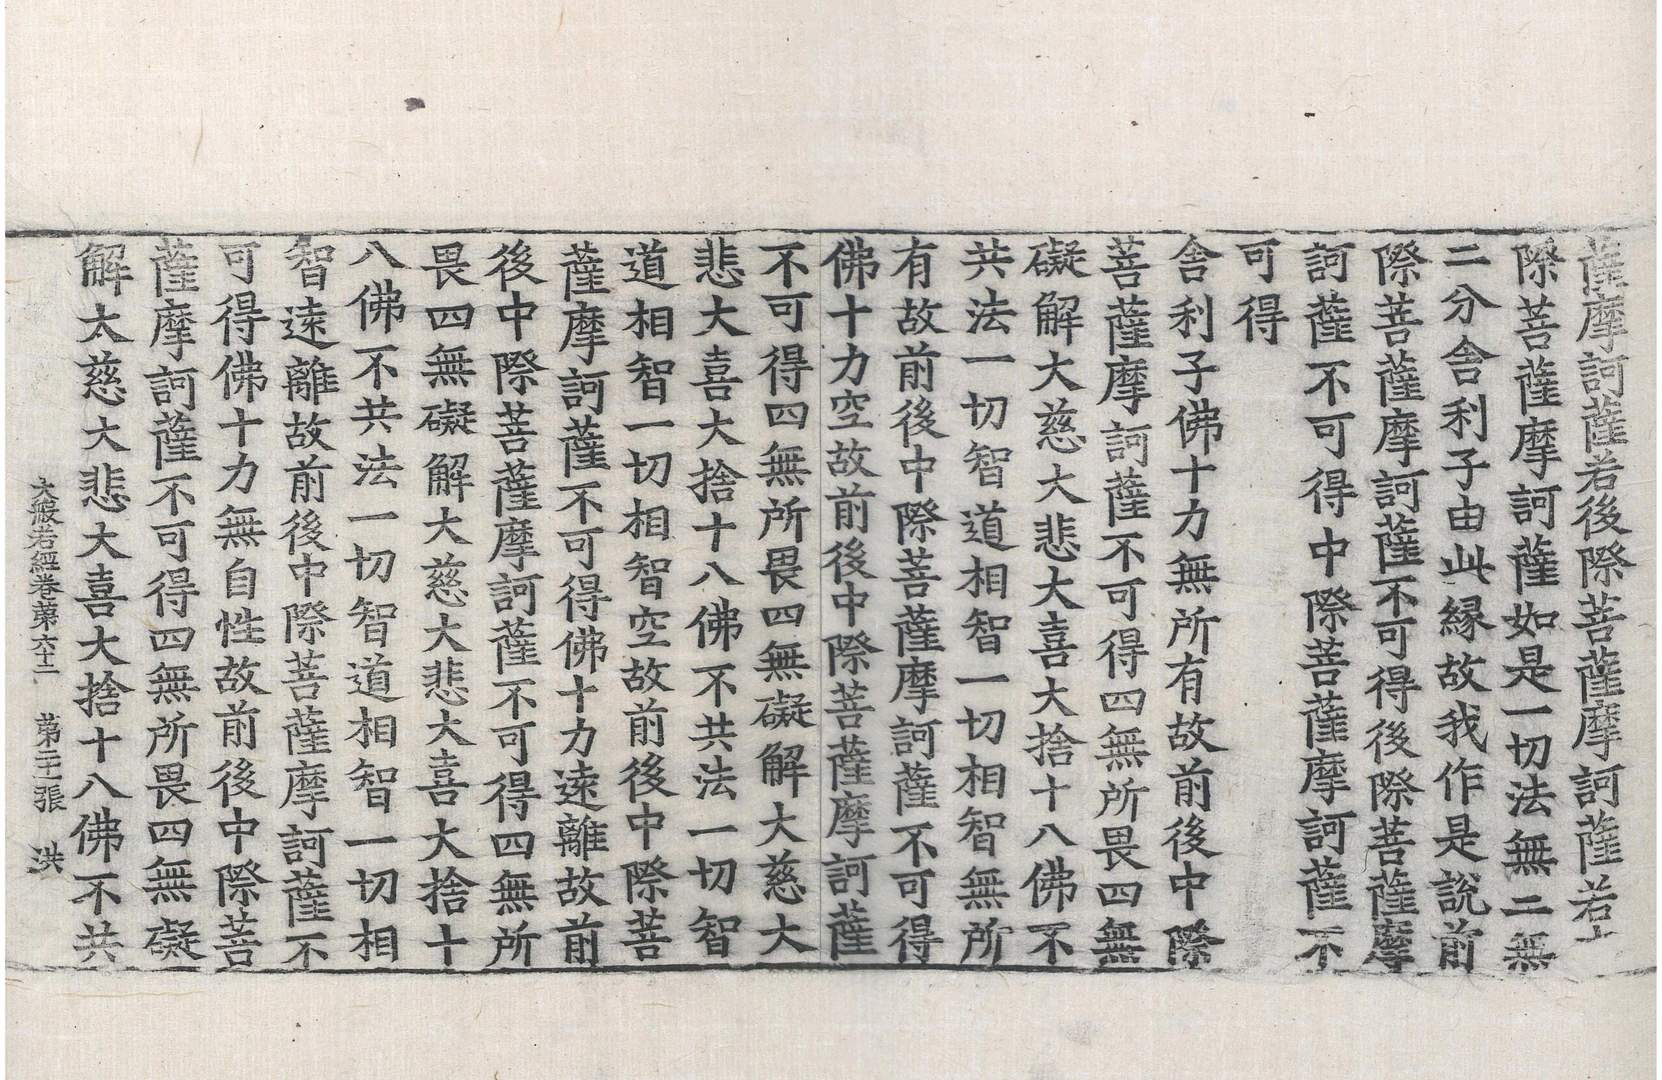 薩摩訶薩若後際菩薩摩訶薩若
際菩薩摩訶薩如是一切法無二無
二分舍利子由此縁故我作是說前
際菩薩摩訶薩不可得後際菩薩摩
訶薩不可得中際菩薩摩訶薩不
可得
舍利子佛十力無所有故前後中際
菩薩摩訶薩不可得四無所畏四無
礙解大慈大悲大喜大捨十八佛不
共法一切智道相智一切相智無所
有故前後中際菩薩摩訶薩不可得
佛十力空故前後中際菩薩摩訶薩
不可得四無所畏四無礙解大慈大
悲大喜大捨十八佛不共法一切智
道相智一切相智空故前後中際菩
薩摩訶薩不可得佛十力遠離故前
後中際菩薩摩訶薩不可得四無所
畏四無礙解大慈大悲大喜大捨十
八佛不共法一切智道相智一切相
智遠離故前後中際菩薩摩訶薩不
可得佛十力無自性故前後中際菩
薩摩訶薩不可得四無所畏四無礙
解大慈大悲大喜大捨十八佛不共
大般若經卷第六十二 第二十一張 洪